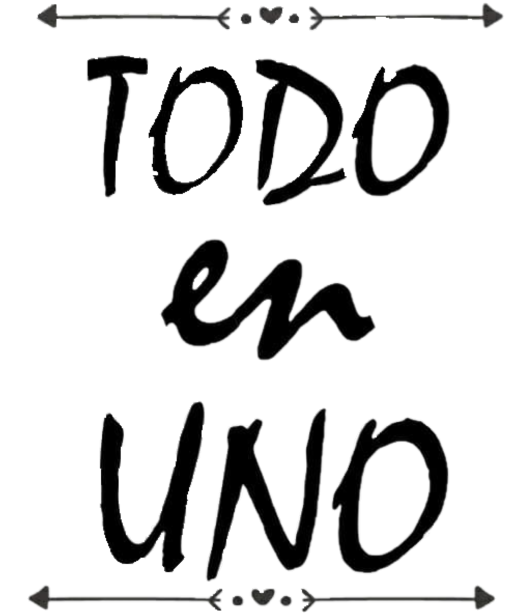 TODO
en
UNO